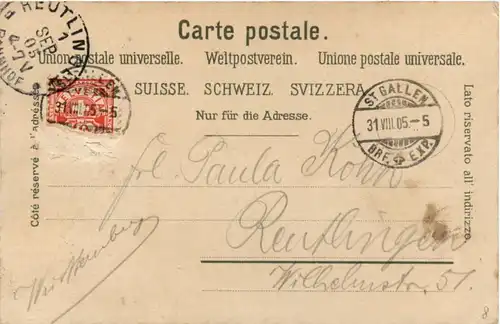 Carte postale.
Union postale universelle. Weltpostverein. Unione postale universale.
SUISSE. SCHWEIZ. SVIZZERA.
Nur für die Adresse.
Côté réservé à l'adresse.
Lato riservato all' indirizzo.
REUTLINGEN
1
SEP
05
4-7 V
BAHNHOF
ST GALLEN
31 VIII 05-5
ST GALLEN
31 VIII 05-5
BRF. EXP.
Frl. Paula Kohn
Reutlingen
Wilhelmstr. 51.
Württemberg
8